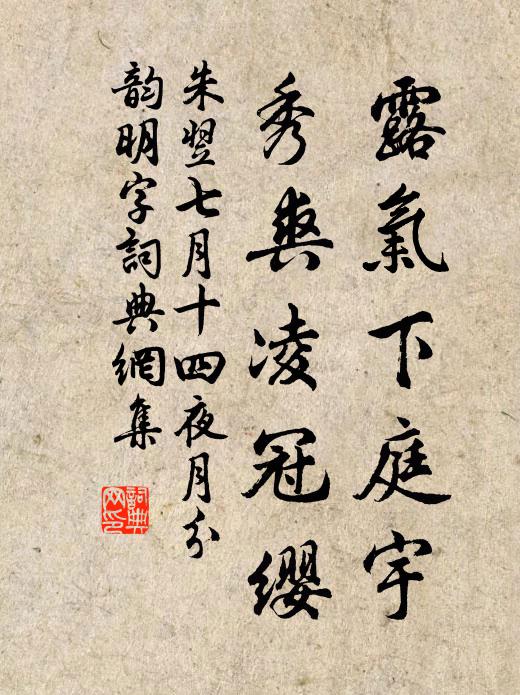 露氣下庭宇
秀爽凌冠纓
朱翌七月十四夜月分
韵明字詞典網集
詞典网印